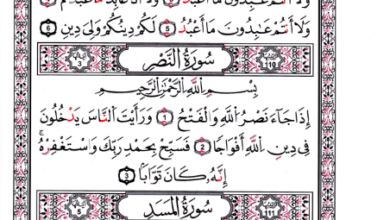 وَلَا أَنتُمْ عَٰبِدُونَ مَا أَعْبُدُ ۝٣ وَلَا أَنَا۠ عَابِدٌ مَّا عَبَدتُّمْ ۝٤
وَلَا أَنتُمْ عَٰبِدُونَ مَا أَعْبُدُ ۝٥ لَكُمْ دِينُكُمْ وَلِيَ دِينِ ۝٦
سُورَةُ النَّصْرِ 110
بِسْمِ اللَّهِ الرَّحْمَٰنِ الرَّحِيمِ
إِذَا جَاءَ نَصْرُ اللَّهِ وَالْفَتْحُ ۝١ وَرَأَيْتَ النَّاسَ يَدْخُلُونَ
فِي دِينِ اللَّهِ أَفْوَاجًا ۝٢ فَسَبِّحْ بِحَمْدِ رَبِّكَ وَاسْتَغْفِرْهُ
إِنَّهُ كَانَ تَوَّابًا ۝٣
سُورَةُ الْمَسَدِ 111